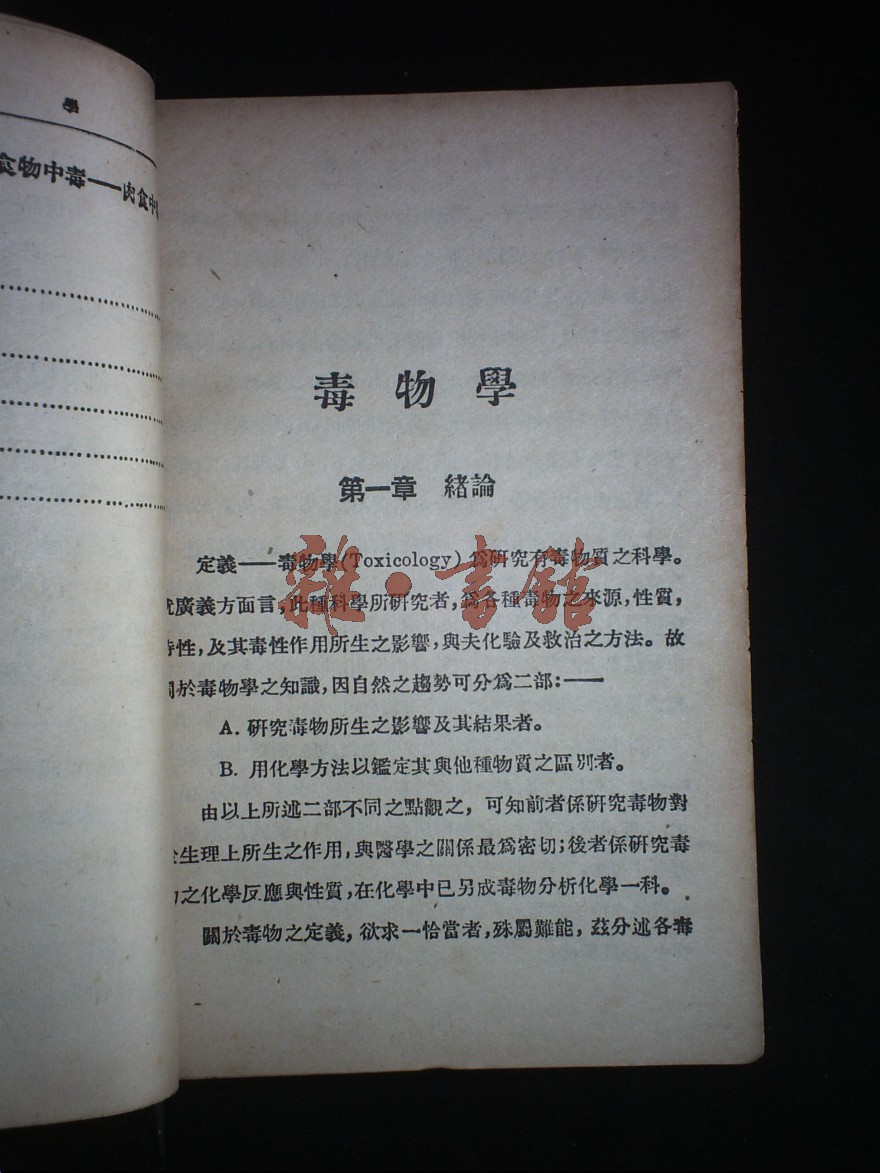 學
食物中毒——肉食中
毒物學
第一章 緒論
定義——毒物學(Toxicology)爲研究有毒物質之科學。
就廣義方面言,此種科學所研究者,爲各種毒物之來源,性質,
特性,及其毒性作用所生之影響,與夫化驗及救治之方法。故
關於毒物學之知識,因自然之趨勢可分爲二部:——
A. 研究毒物所生之影響及其結果者。
B. 用化學方法以鑑定其與他種物質之區別者。
由以上所述二部不同之點觀之,可知前者係研究毒物對
於生理上所生之作用,與醫學之關係最爲密切;後者係研究毒
物之化學反應與性質,在化學中已另成毒物分析化學一科。
關於毒物之定義,欲求一恰當者,殊屬難能,茲分述各毒
雜·書館